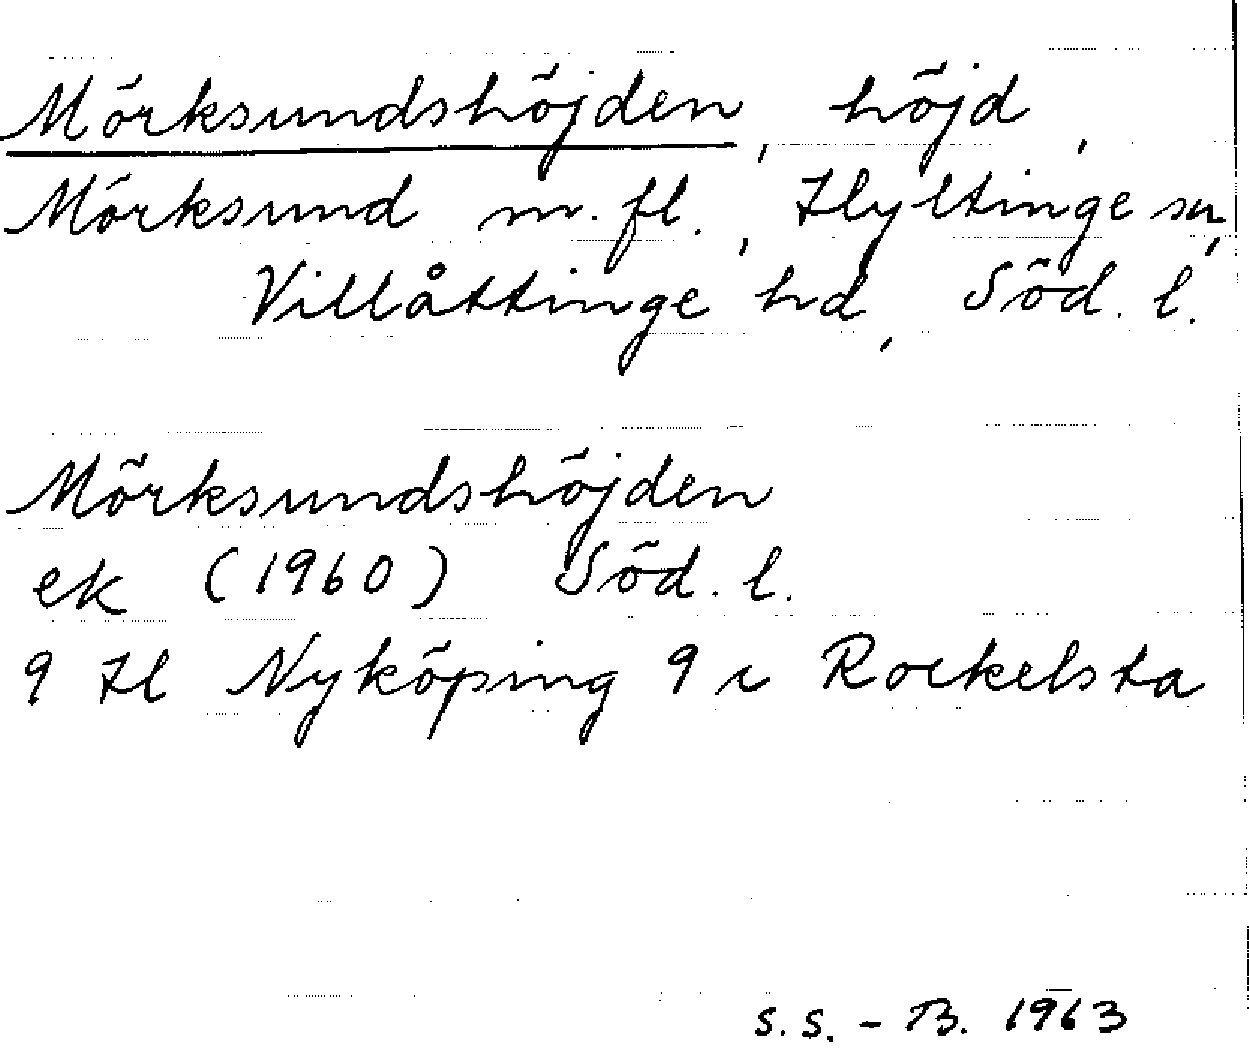 Mörksundshöjden, höjd,
Mörksund m.fl., Hyltinge sn,
Villåttinge hd, Söd. l.
Mörksundshöjden
ek (1960) Söd. l.
9 H Nyköping 9 c Rockelsta
S.S. - B. 1963